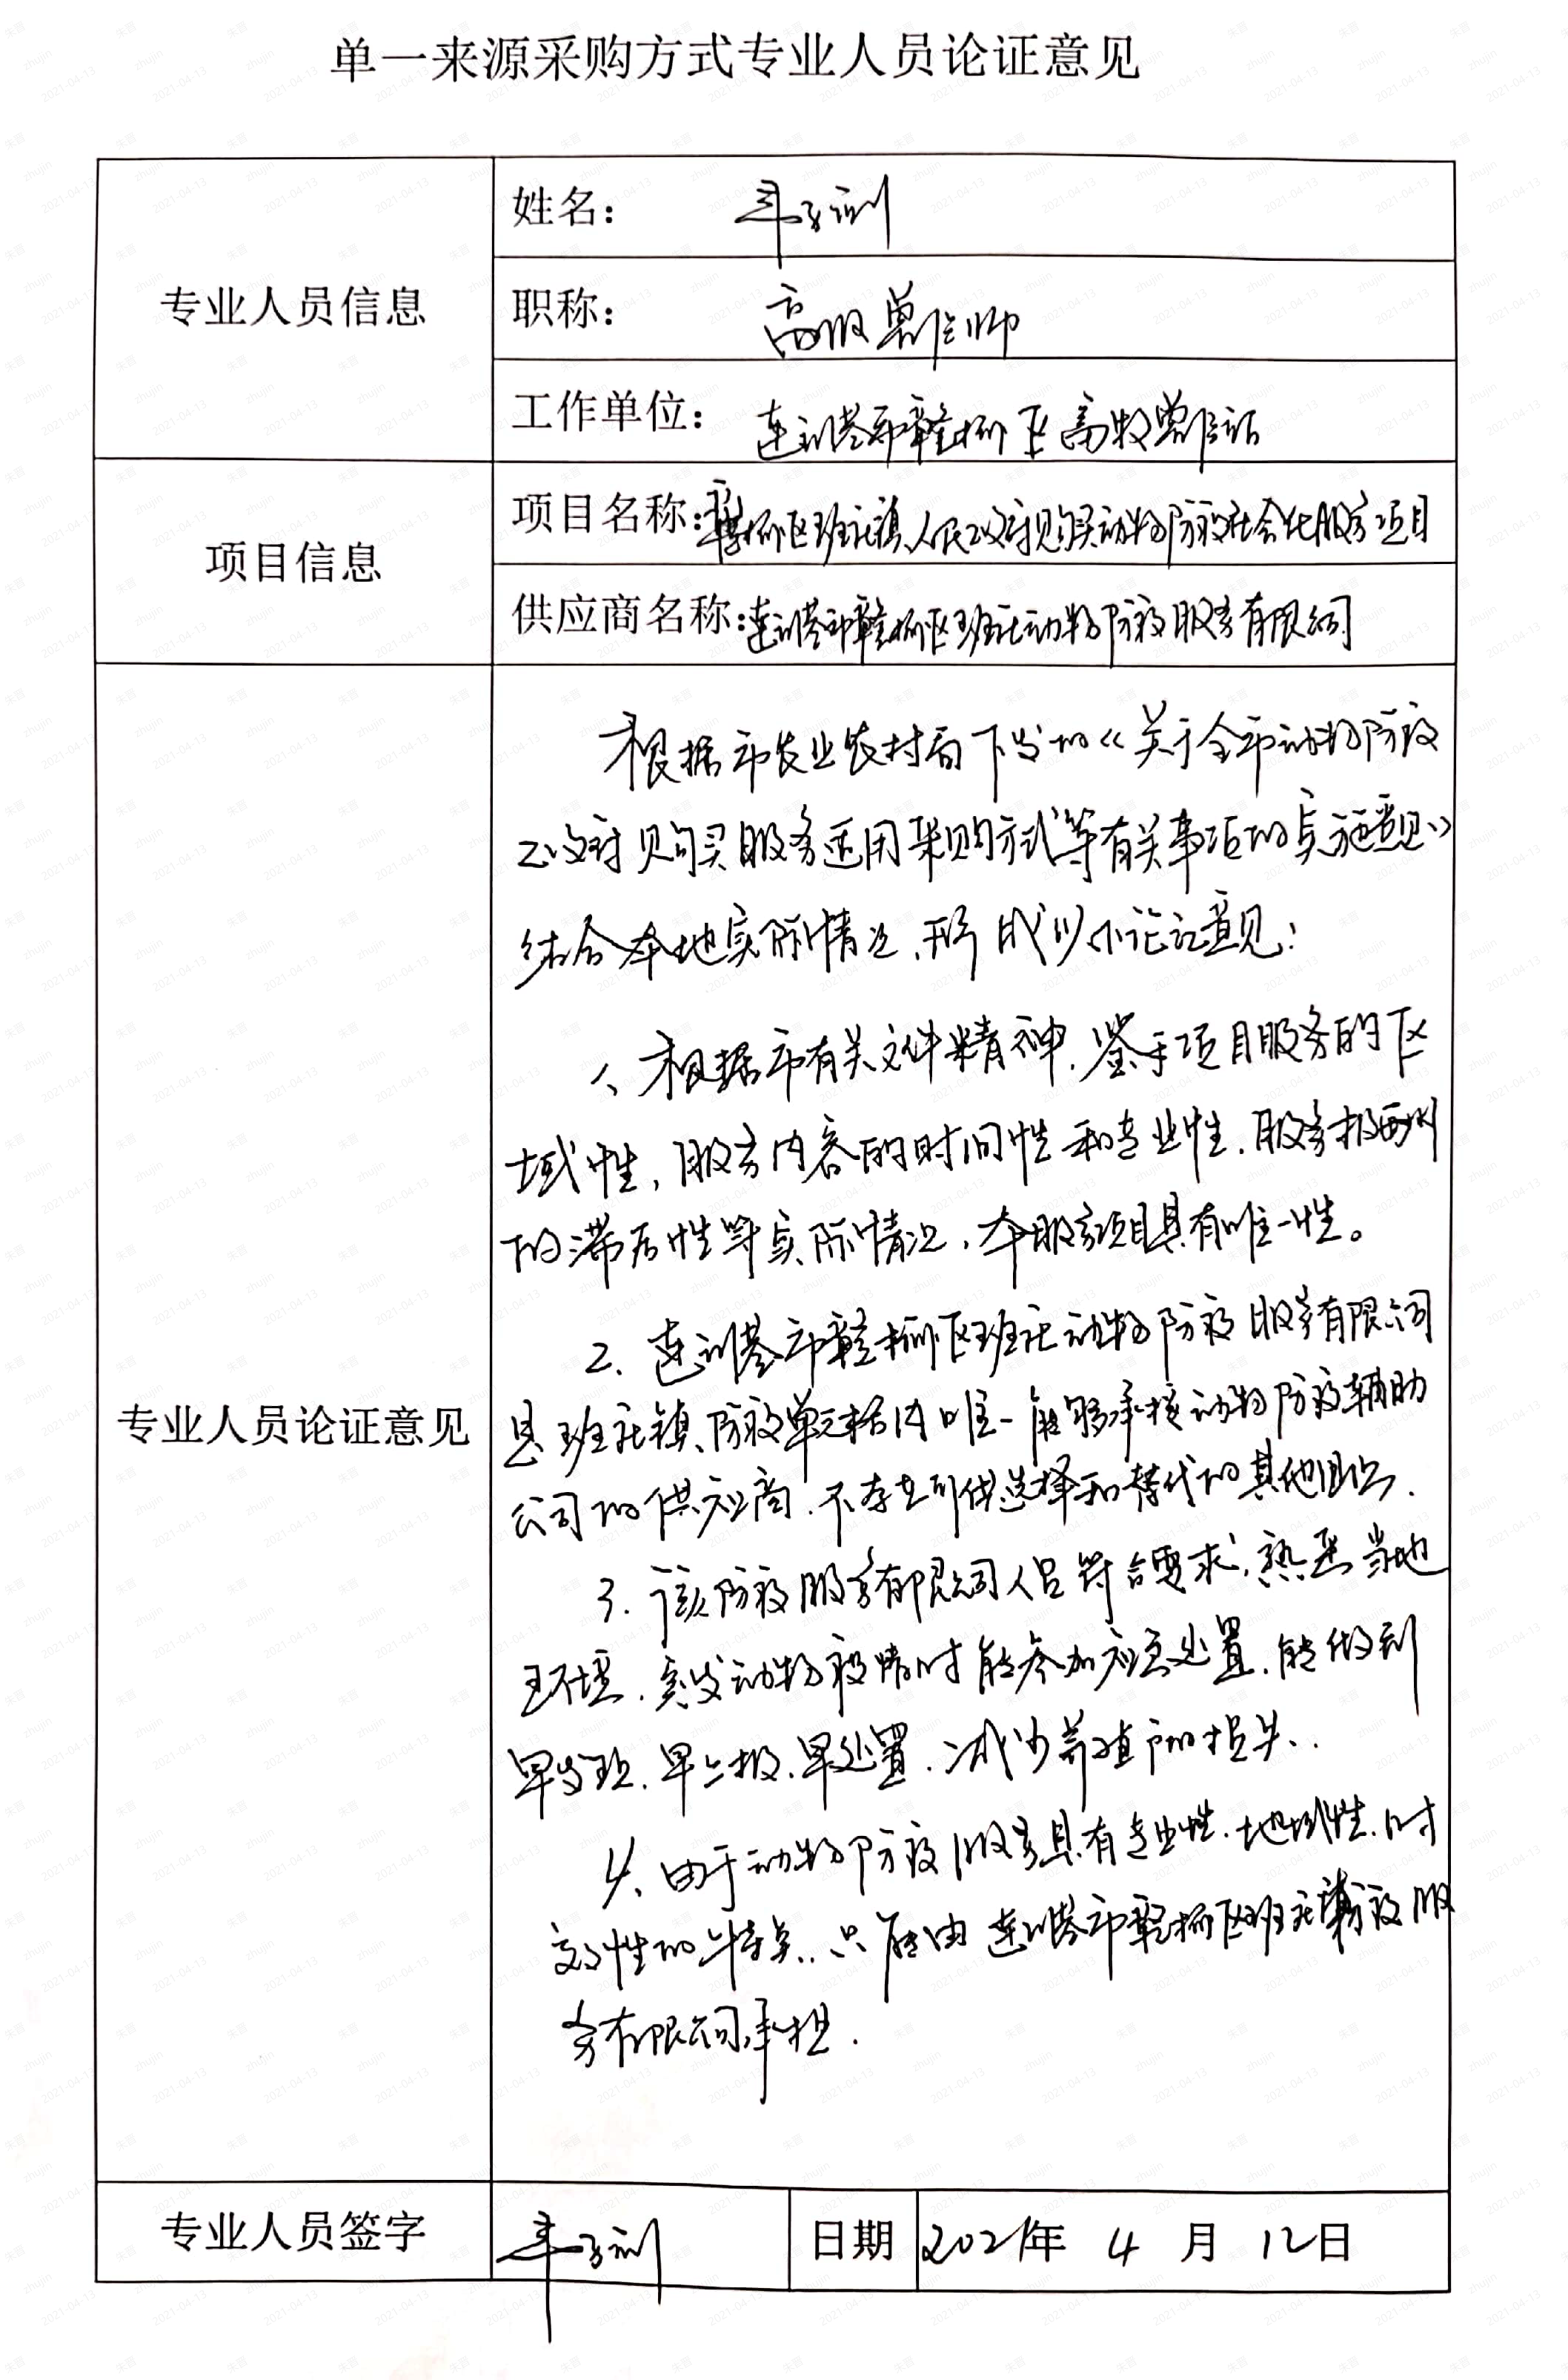 单一来源采购方式专业人员论证意见
专业人员信息
姓名：
职称： 高级兽医师
工作单位： 连云港市赣榆区畜牧兽医站
项目信息
项目名称：赣榆区班庄镇人民政府购买动物防疫社会化服务项目
供应商名称：连云港市赣榆区班庄动物防疫服务有限公司
专业人员论证意见
根据市农业农村局下发的《关于全市动物防疫
政府购买服务适用采购方式等有关事项的实施意见》
结合本地实际情况，形成以下论证意见：
1、根据市有关文件精神，鉴于项目服务的区
域性，服务内容的时间性和专业性，服务报酬
的滞后性等实际情况，本服务项目具有唯一性。
2、连云港市赣榆区班庄动物防疫服务有限公司
是班庄镇防疫单元格内唯一能够承接动物防疫辅助
公司的供应商，不存在可供选择和替代的其他组织．
3．该防疫服务有限公司人员符合要求，熟悉当地
环境，突发动物疫情时能参加应急处置，能做到
早发现、早上报、早处置，减少养殖户的损失．
4、由于动物防疫服务具有专业性．地域性．时
效性的特点．只能由连云港市赣榆区班庄动物防疫服
务有限公司承担．
专业人员签字
日期 2021年 4 月 12日
朱晋
zhujin
2021-04-13